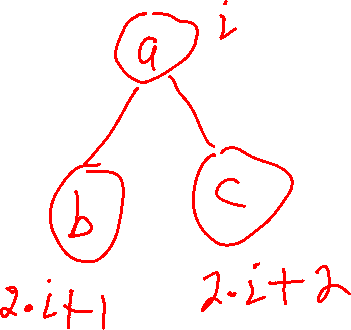 i
a
b c
2·i+1 2·i+2